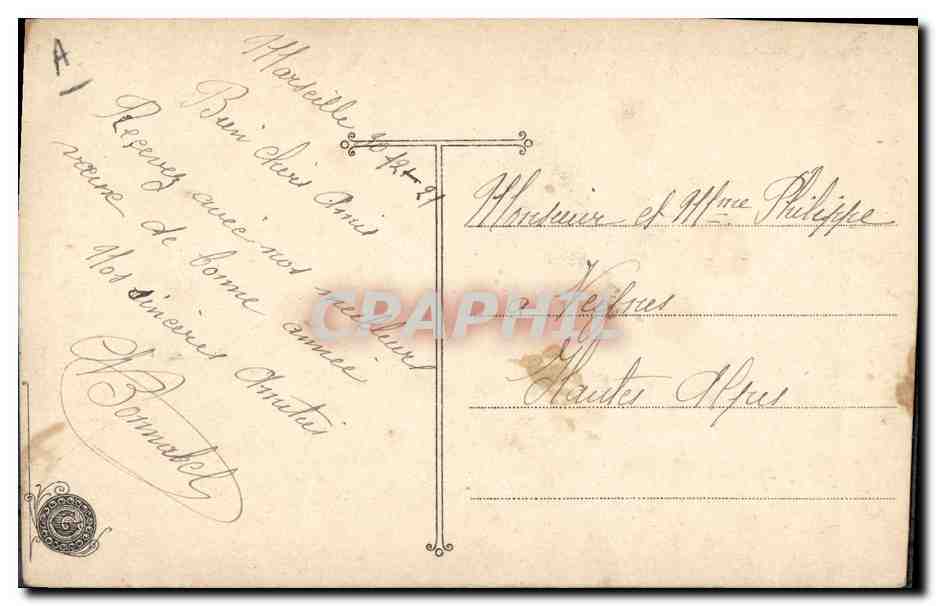 A
Marseille 30-12-21
Bien chers Amis
Recevez avec nos meilleurs
vœux de bonne année
Nos sincères Amitiés
Bonnabel
Monsieur et Mme Philippe
à Veynes
Hautes Alpes
CPAPHIL
G